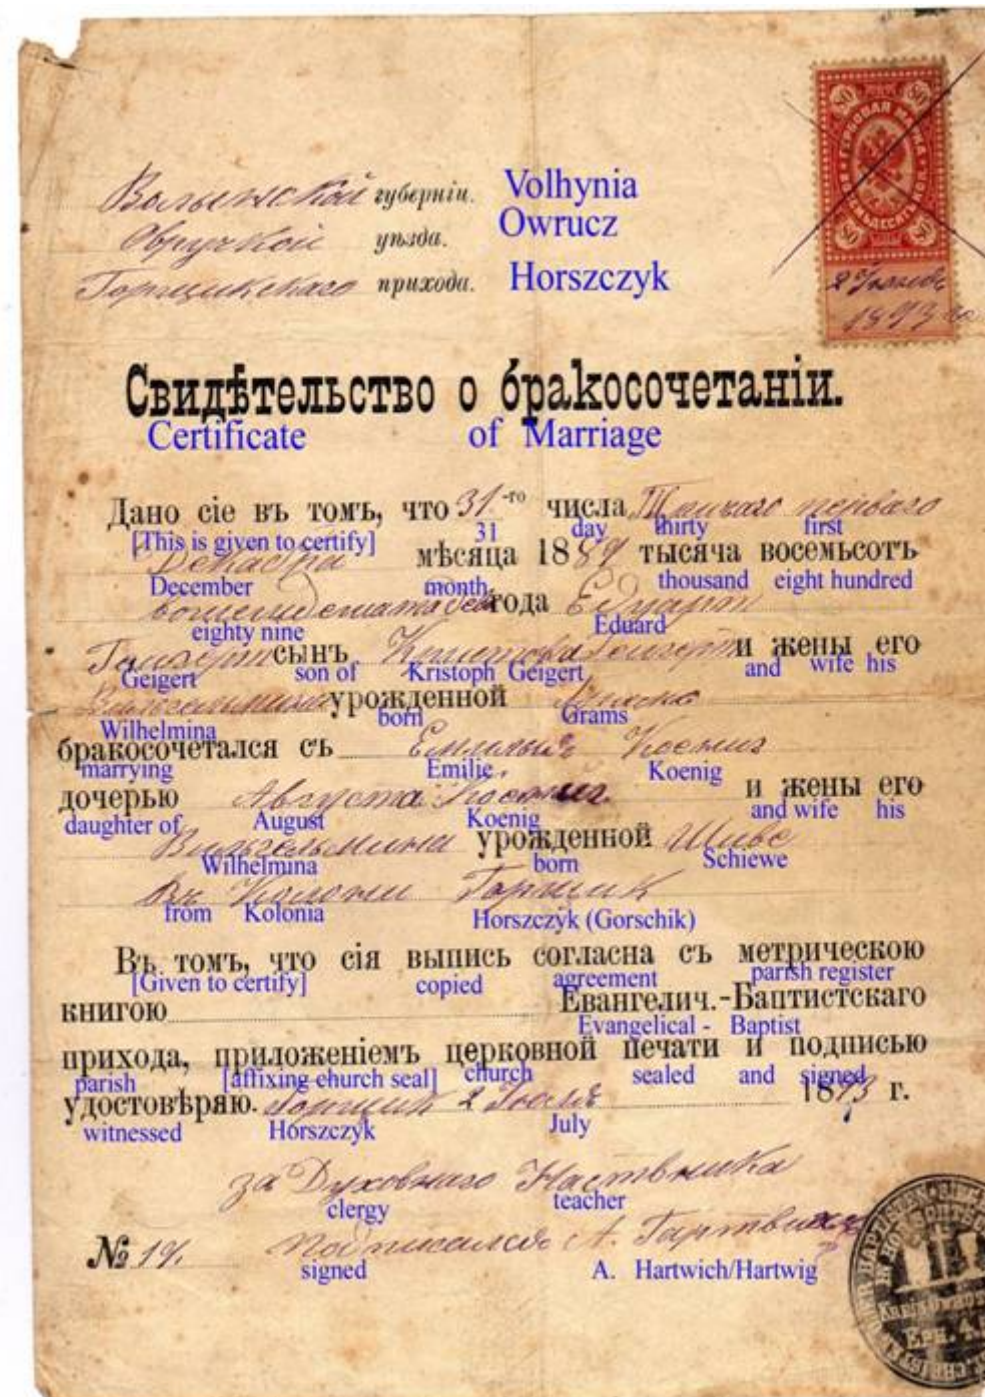 Волынской губернiи. Volhynia
Овручкой уѣзда. Owrucz
Горщикскаго прихода. Horszczyk
80 80
ГЕРБОВАЯ МАРКА
80 80
2
1893 го
Свидѣтельство о бракосочетанiи.
Certificate of Marriage
Дано сiе въ томъ, что 31-го числа Тридцать перваго
[This is given to certify] 31 day thirty first
Декабря мѣсяца 1889 тысяча восемьсотъ
December month thousand eight hundred
года Едуард
eighty nine Eduard
сынъ и жены его
Geigert son of Kristoph Geigert and wife his
урожденной
Wilhelmina born Grams
бракосочетался съ Емилья Кoениг
marrying Emilie Koenig
дочерью Августа Кoениг и жены его
daughter of August Koenig and wife his
Вильгельмина урожденной Шиве
Wilhelmina born Schiewe
Въ Колонiи Горщик
from Kolonia Horszczyk (Gorschik)
Въ томъ, что сiя выпись согласна съ метрическою
[Given to certify] copied agreement parish register
книгою Евангелич.-Баптистскаго
Evangelical - Baptist
прихода, приложенiемъ церковной печати и подписью
parish [affixing church seal] church sealed and signed
удостовѣряю. Горщик 2 Iюля 1893 г.
witnessed Horszczyk July
за Духовнаго Наставника
clergy teacher
№ 19. Подписался А. Гартвих
signed A. Hartwich/Hartwig